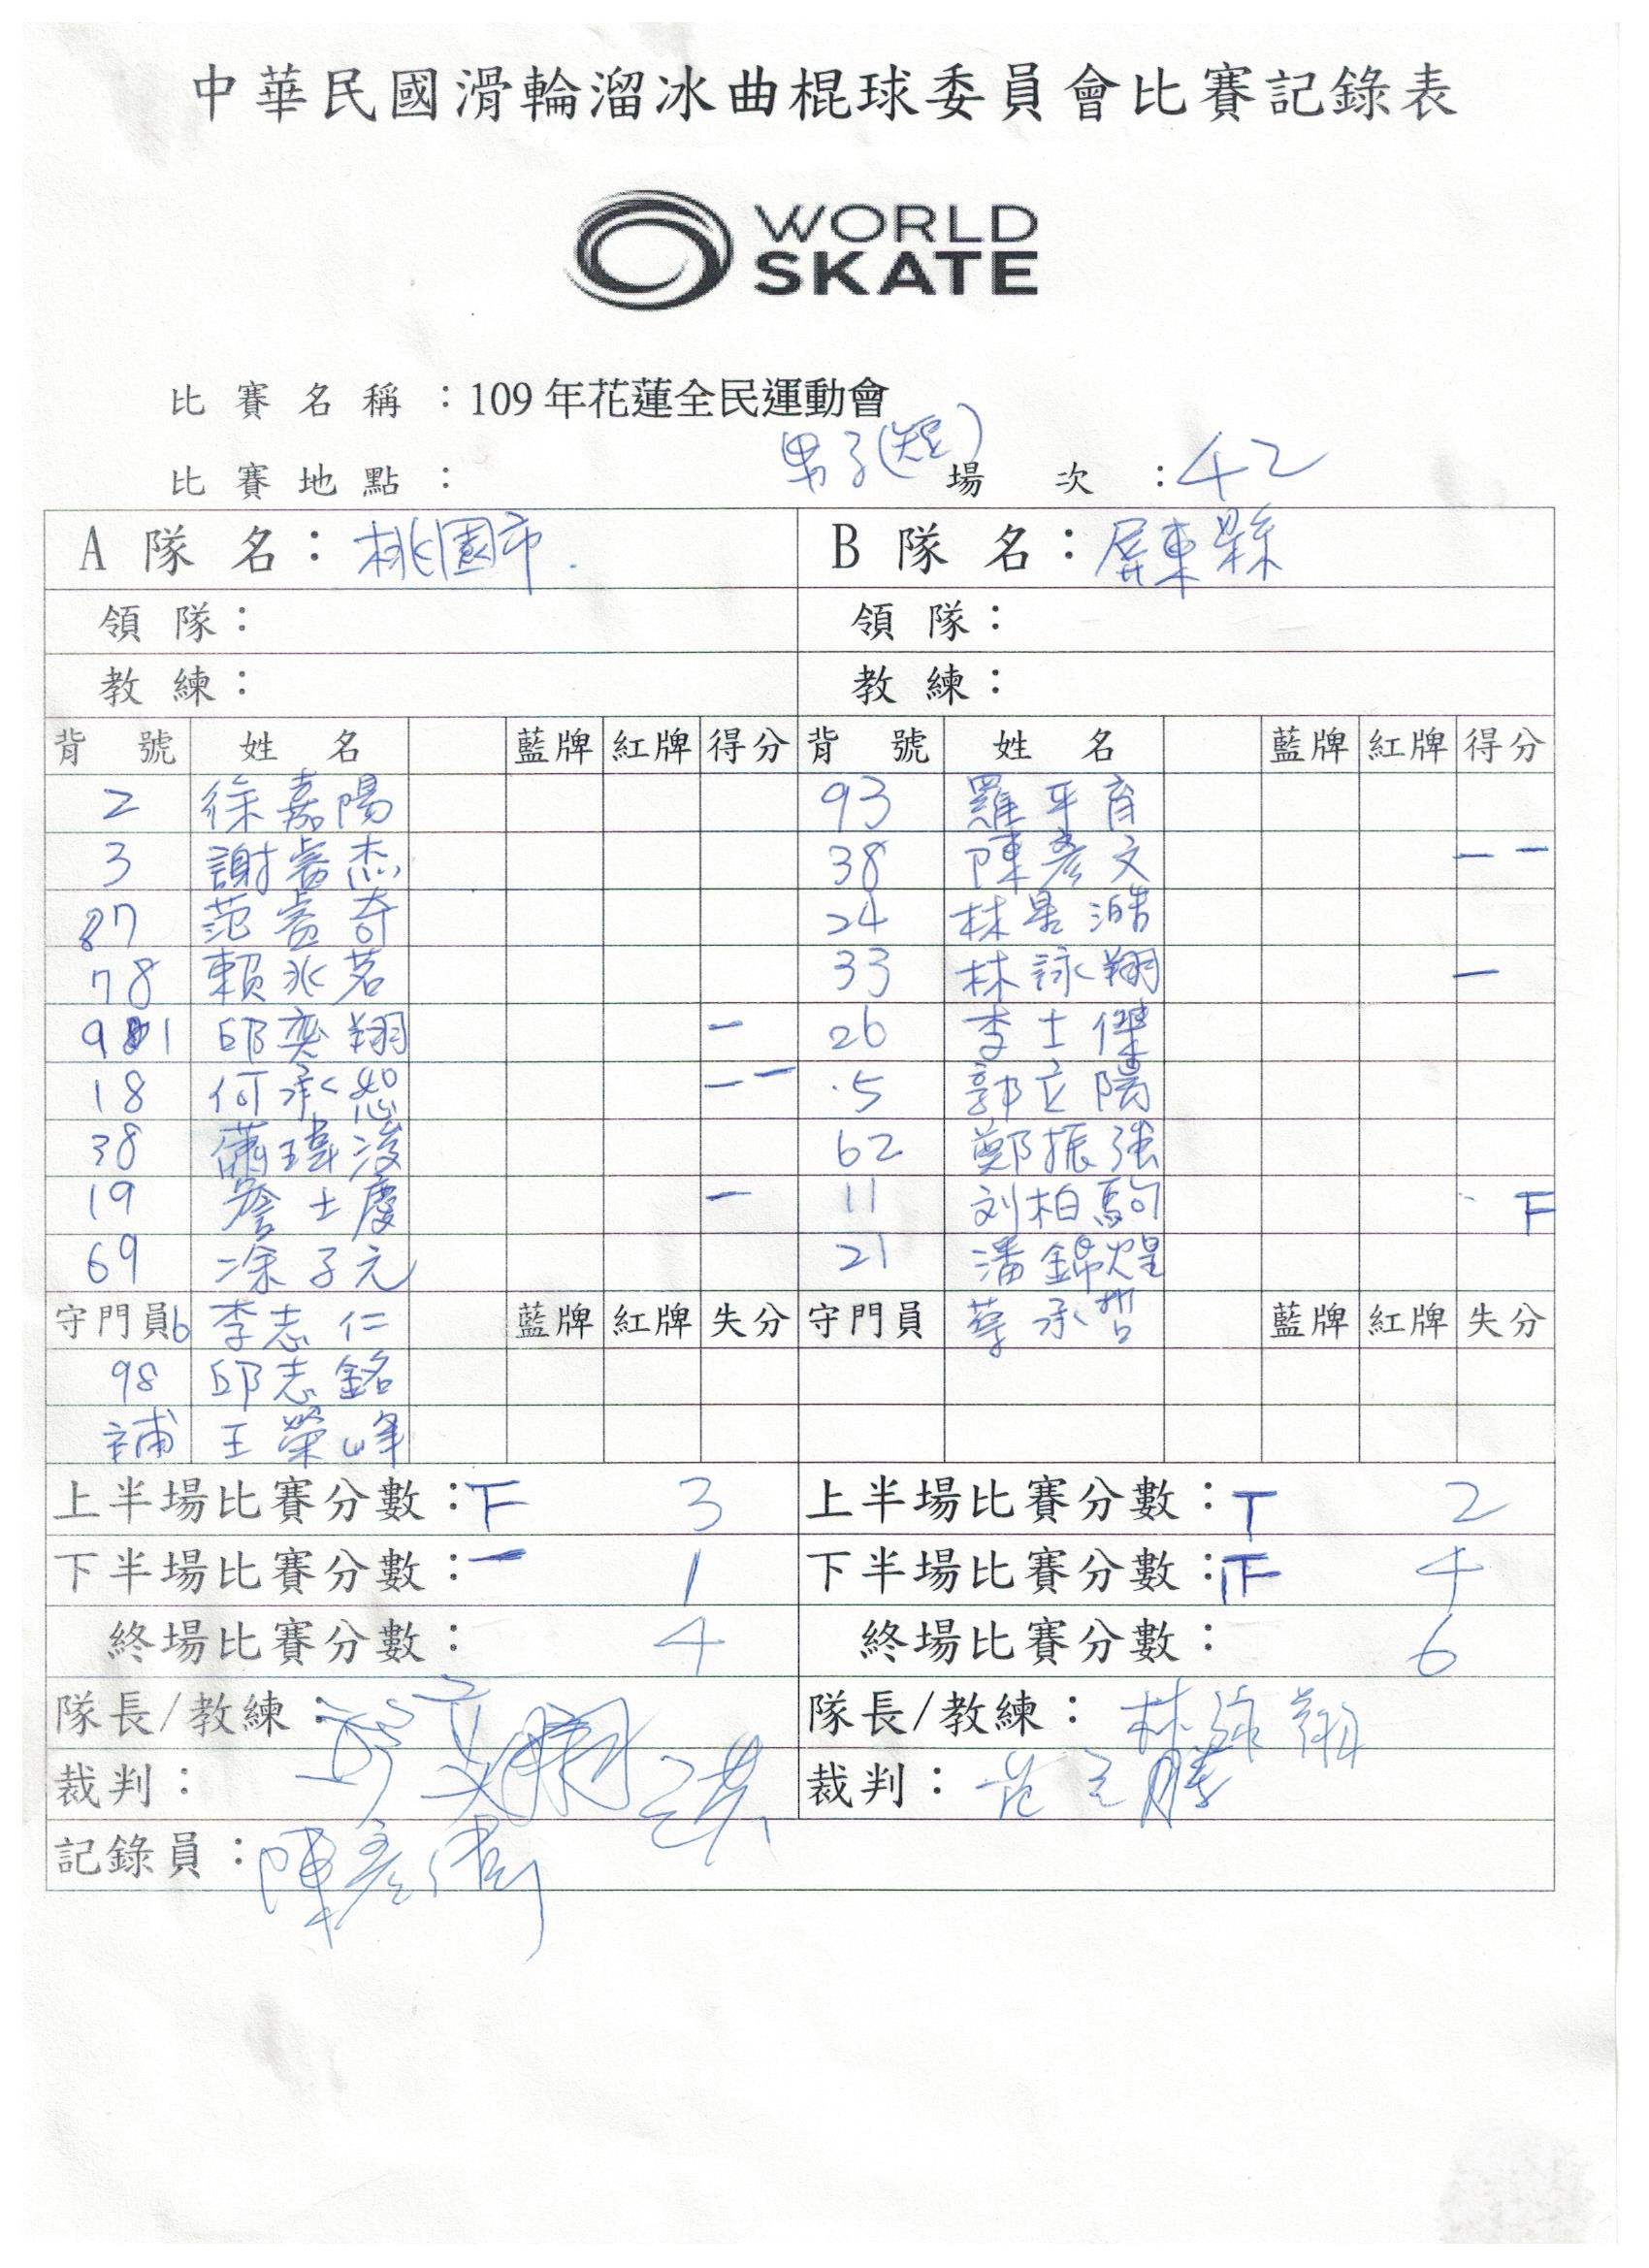 中華民國滑輪溜冰曲棍球委員會比賽記錄表
WORLD
SKATE
比賽名稱：109年花蓮全民運動會
男子(短)
比賽地點： 場次：42
A隊名：桃園市. B隊名：屏東縣
領隊： 領隊：
教練： 教練：
背號 姓名 藍牌 紅牌 得分 背號 姓名 藍牌 紅牌 得分
2 徐嘉陽 93 羅平育
3 謝睿杰 38 陳彥文 一 一
87 范睿奇 24 林昰澔
78 賴兆茗 33 林詠翔 一
91 邱奕翔 一 26 李士傑
18 何承恕 一 一 5 郭立陽
38 蕭瑋浚 62 鄭振強
19 詹士慶 一 11 刘柏駒 F
69 凃子元 21 潘錦煌
守門員6 李志仁 藍牌 紅牌 失分 守門員 蔡承哲 藍牌 紅牌 失分
98 邱志銘
補 王榮峰
上半場比賽分數：F 3 上半場比賽分數：T 2
下半場比賽分數：一 1 下半場比賽分數：正 4
終場比賽分數： 4 終場比賽分數： 6
隊長/教練： 隊長/教練：林詠翔
裁判： 裁判：
記錄員：陳彥